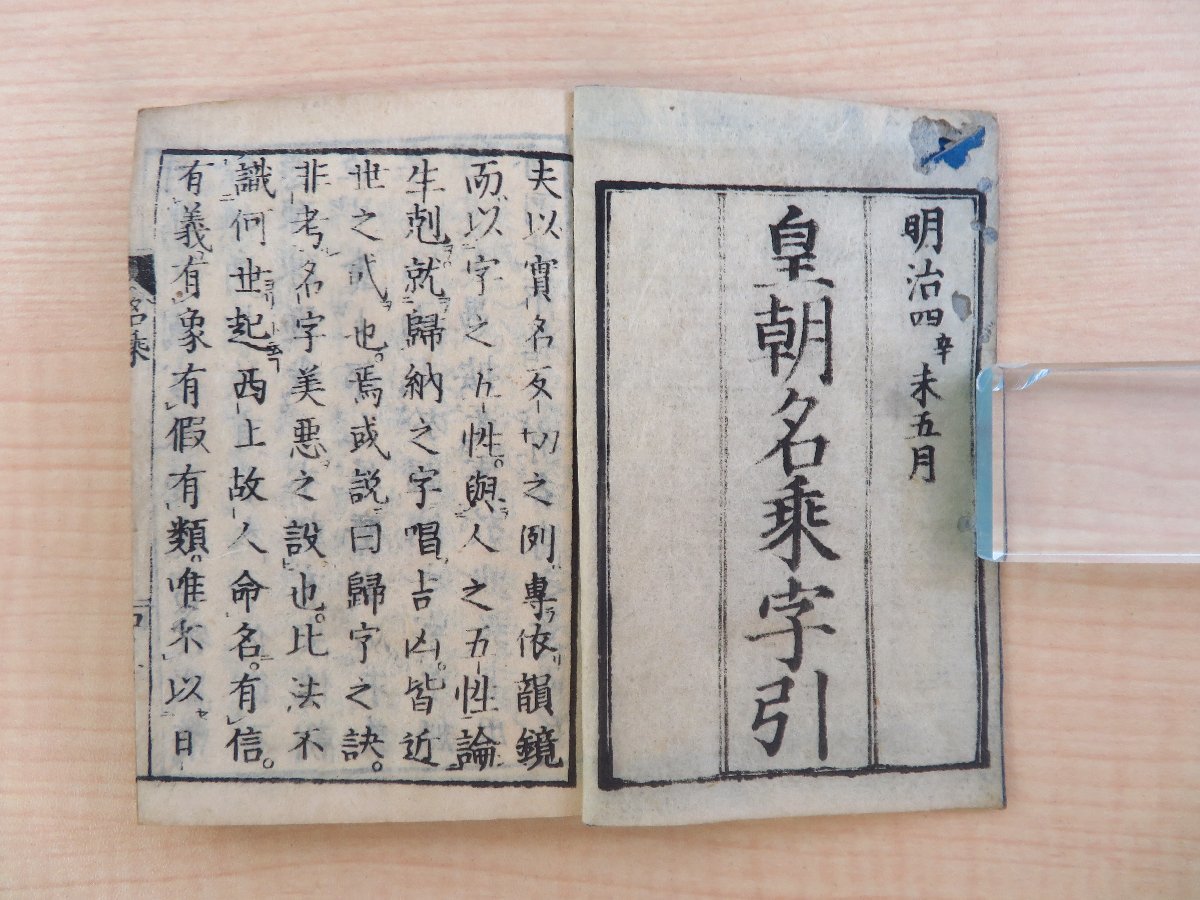 明治四辛未五月
皇朝名乘字引
夫以實名反切之例專依韻鏡
而以字之五性。與人之五性論
生剋就歸納之字唱吉凶。皆近
世之弐也。焉或説曰歸字之訣。
非考名字美惡之設也。比法不
識何世起。西上故人命名。有信。
有義有象有假有類。唯不以日
名乘